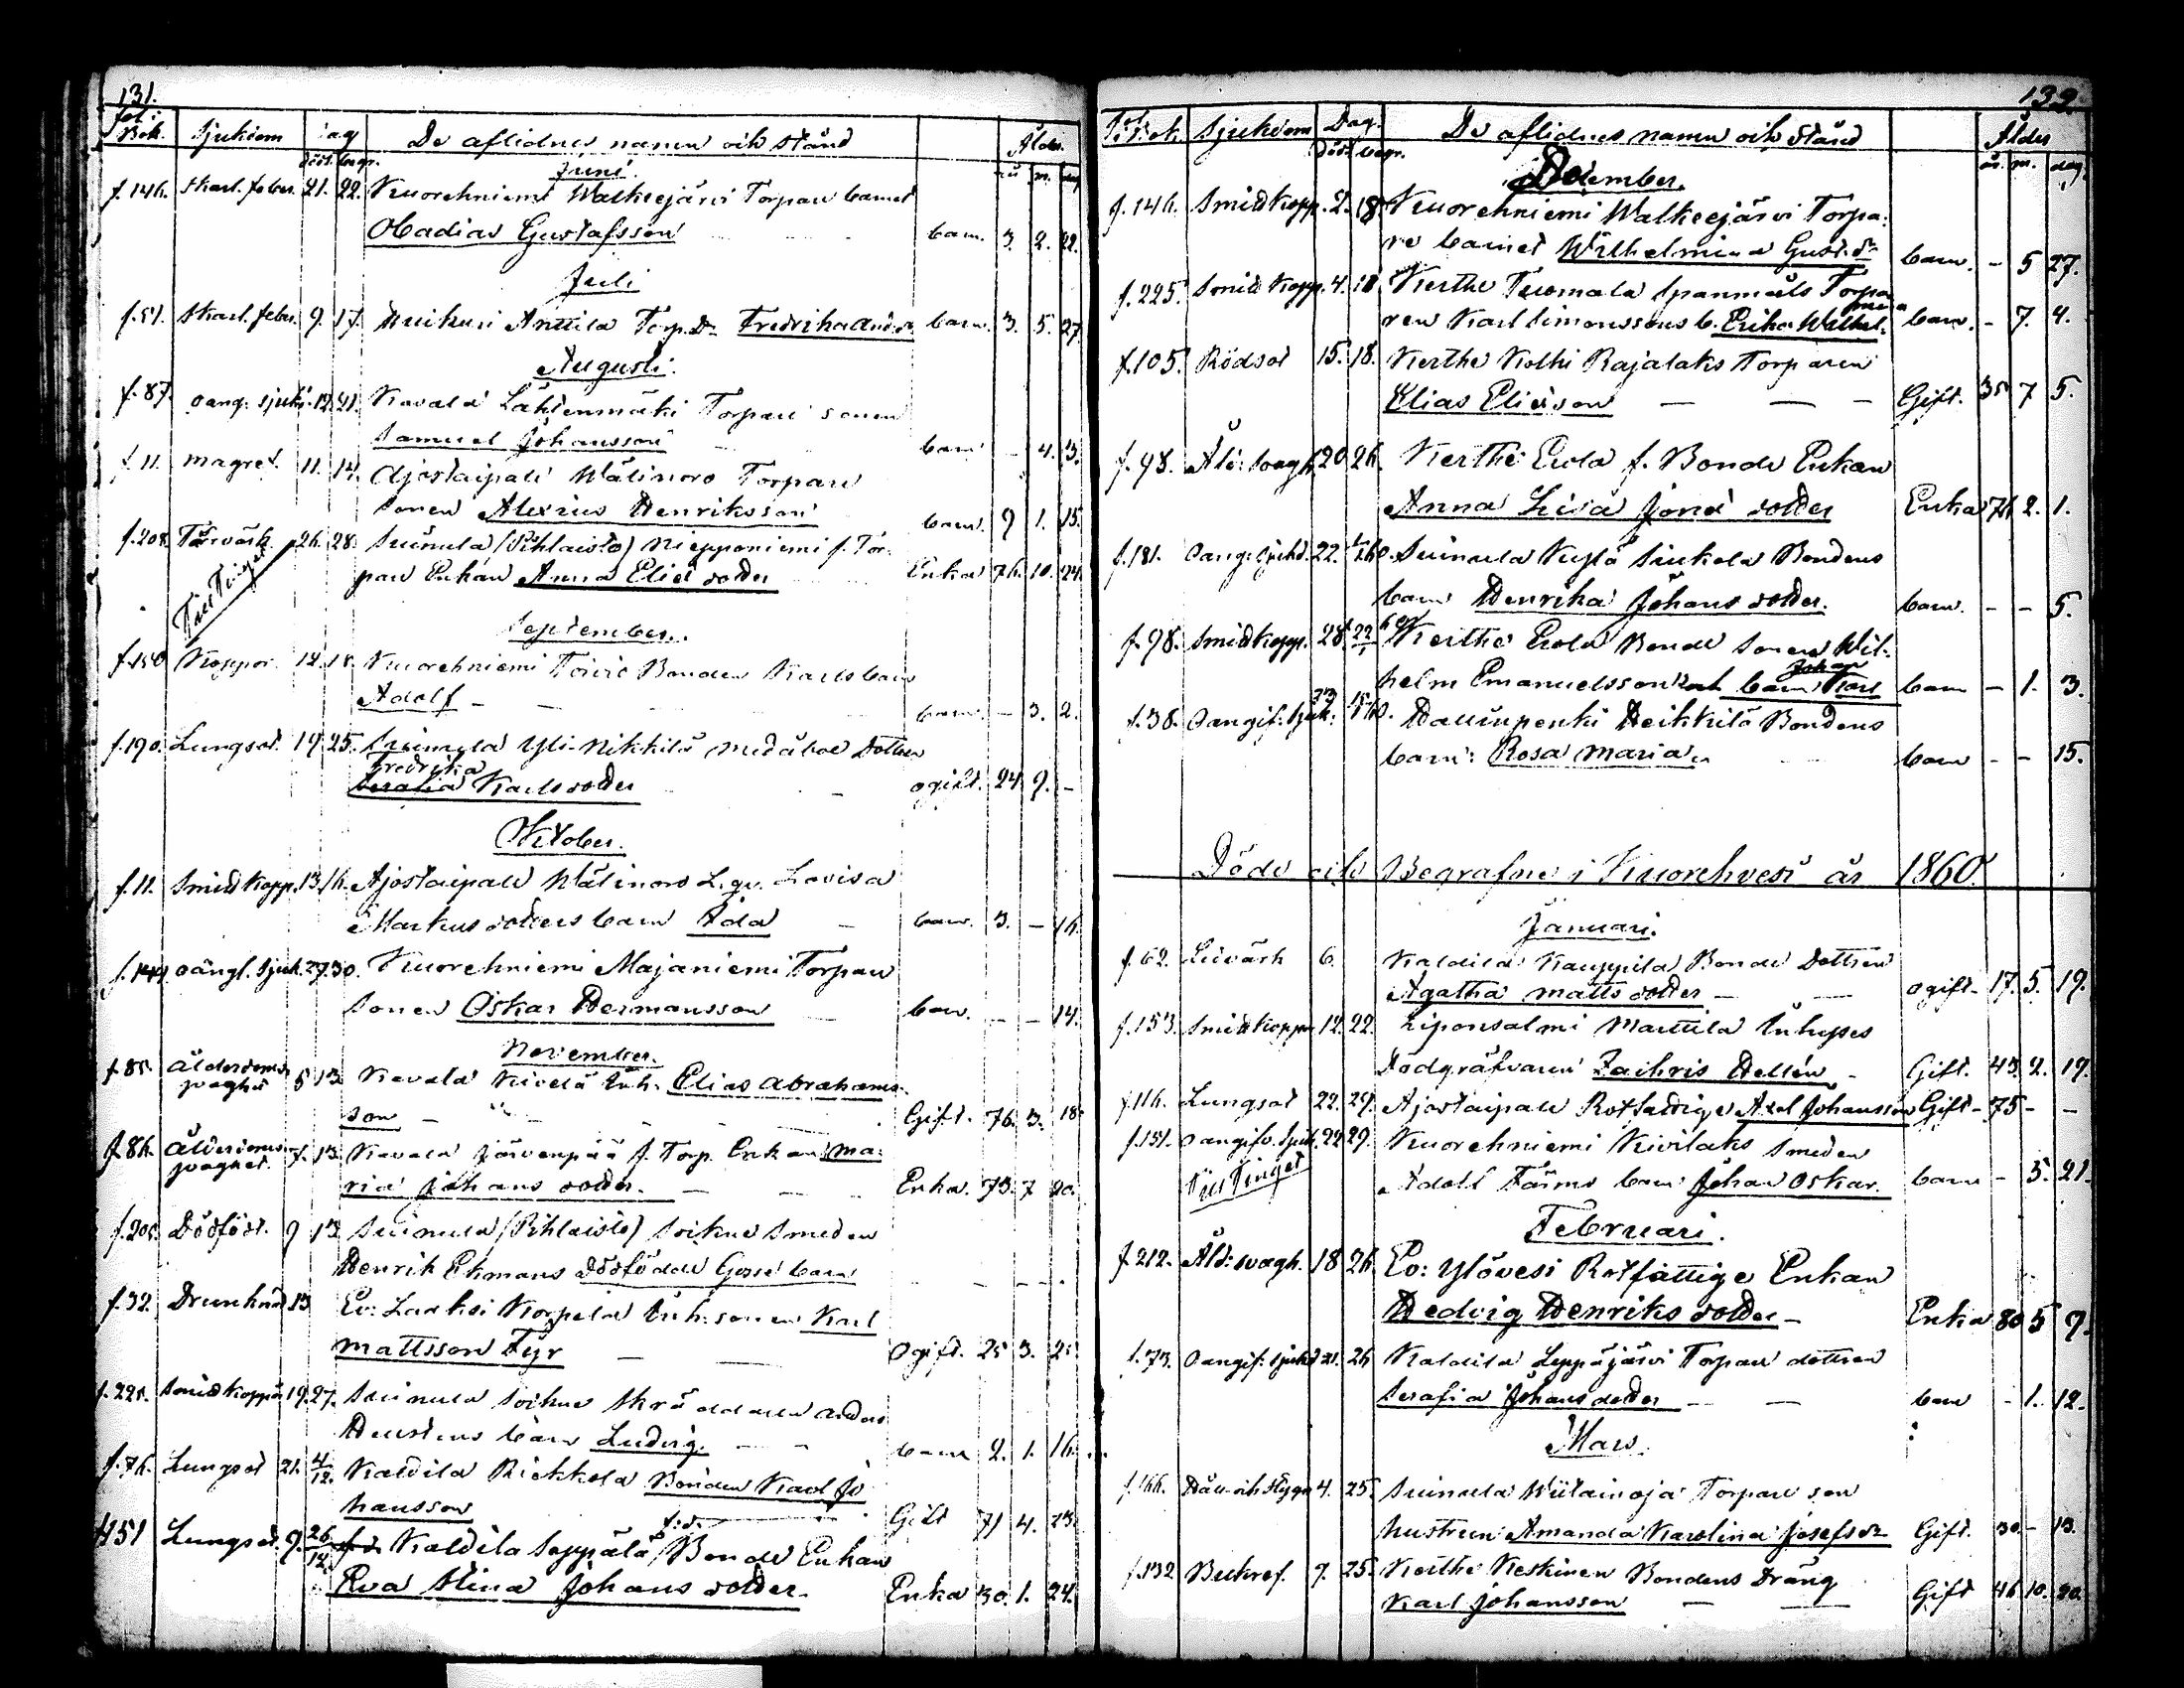 131.
fol: Bok. Sjukdom Dag De aflidnes namn och stånd Ålder.
död. begr. år m. dag
Juni.
f.146. Skarl. feber. 21. 22. Kuorehniemi Walkeejärvi Torpare barnet
Obadias Gustafsson barn. 3. 2. 22.
Juli
f.51. Skarl. feber. 9. 17. Torp.Dr Fredrika barn. 3. 5. 27
Augusti.
f.87. oang. sjukd. 12. 21. Kavala Lahdenmäki Torpare sonen
Samuel Johansson barn - 4. 13.
f.11. magref. 11. 14. Ajostaipale Wälinoro Torpare
sonen Alexius Henriksson barn. 9 1. 15.
f.208. Tärvärk. 26. 28. Suinula (Pihlaisto) Niepponiemi f. Tor-
pare Enkan Anna Eliædotter Enka 76. 10. 24.
Ting
September.
f.150 Koppor. 12. 18. Kuorehniemi Toivio Bonden Karls barn
Adolf - barn. - 3. 2.
f.190. Lungsot. 19. 25. Suinula Yli-Nikkilä Dotter
Fredrika
Karlsdotter ogift. 24 9. -
Oktober.
f.11. Smidkopp. 13. 16. Ajostaipale Wälinoro L.qv. Lovisa
Markusdotters barn Ada barn. 3. - 16.
f.144 oångl. Sjuk. 27. 30. Kuorehniemi Majaniemi Torpare
sonen Oskar Hermansson barn. - - 14.
November.
f.85. Ålderdoms-
svaghet 5 13 Kavala Kivelä Inh. Elias Abrahams-
son - Gift. 76. 3. 18.
f.86. Ålderdoms-
svaghet. 7. 13 Kavala Järvenpää f. Torp. Enkan Ma-
ria Johansdotter. Enka. 73. 7 20.
f.205. Dödfödt. 9 13 Suinula (Pihlaisto) Soikne Smeden
Henrik Ekmans dödfödde Gosse barn - - - -
f.32. Drunknad 13 Ev: Laaksi Korpela Inh. sonen Karl
Mattsson Fyr Ogift. 25 3. 25
f.221. Smidkoppor 19. 27. Suinula Soikne Skräddaren
barn Ludvig. barn 2. 1. 16.
f.76. Lungsot 21. 4/12. Kaldila Riekkola Bonden Karl Jo-
hansson Gift 71 4. 23.
f.s.
f.51 Lungsot. 9. 26/12 Kaldila Seppälä Bonde Enkan
Eva Stina Johansdotter. Enka 30. 1. 24.
132.
Fol: Bok. Sjukdom Dag. De aflidnes namn och stånd Ålder
död begr. år. m. dag.
December.
f.146. Smidkopp. 2. 18. Kuorehniemi Walkeejärvi Torpa-
re barnet Wilhelmina Gust.dr barn. - 5 27.
f.225. Smidkopp. 4. 18 Kerthe Tuomala Spanmåls Torpa-
ren Karl Simonssons b. Erika Wilhel-
mina barn. - 7. 4.
f.105. Rödsot 15. 18. Kerthe Kolhi Rajalaks Torparen
Elias Eliesson - Gift. 35 7 5.
f.98. Åld: svagh. 20 26. Kerthe Erola f. Bonde Enkan
Anna Lisa Jonædotter Enka 76 2. 1.
f.181. Oang: Sjukd. 22. 26. Suinula Kylä Siukola Bondens
barn Henrika Johansdotter. barn. - - 5.
f.98. Smidkopp. 28 22/1 Kerthe Erola Bonde sonen Wil-
helm Emanuelssons barn Karl Johan barn - 1. 3.
f.38. Oangif: Sjuk: 23 Hallinpenki Heikkilä Bondens
barn: Rosa Maria barn - - 15.
Döde och Begrafne i Kuorehvesi år 1860.
Januari.
f.62. Livärk 6. Kaldila Kauppila Bonde Dottren
Agatha Mattsdotter - ogift- 17. 5. 19.
f.153. Smidkoppor 12. 22. Liponsalmi Marttila Inhyses
Dödgräfvaren Zachris Hellén - Gift. 43. 2. 19.
f.116. Lungsot 22. 29. Ajostaipale Rotfattige Axel Johansson Gift- 75 - -
f.151. Oangifv. Sjuk. 22 29. Kuorehniemi Kivilaks Smeden
Tinget
Adolf Färms barn Johan Oskar. barn - 3. 21.
Februari.
f.212. Åld: svagh. 18 26 Ev: Ylövesi Rotfattige Enkan
Hedvig Henriksdotter - Enka 80 5 9.
f.73. Oangif: Sjukd 21. 26 Kaldila Leppäjärvi Torpare dottren
Serafia Johansdotter - barn - 1. 12.
Mars.
f.166. Håll och Stygn 4. 25. Suinula Wiitainoja Torpare son
hustrun Amanda Karolina Josefsdr Gift. 30. - 13.
f.132 7. 25. Kerthe Keskinen Bondens Dräng
Karl Johansson - Gift 46 10. 20.